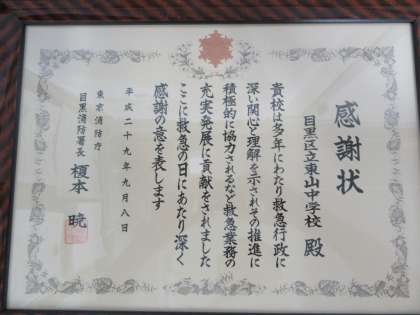 感謝状
目黒区立東山中学校 殿
貴校は多年にわたり救急行政に
深い関心と理解を示されその推進に
積極的に協力されるなど救急業務の
充実発展に貢献をされました
ここに救急の日にあたり深く
感謝の意を表します
平成二十九年九月八日
東京消防庁
目黒消防署長 榎本 暁